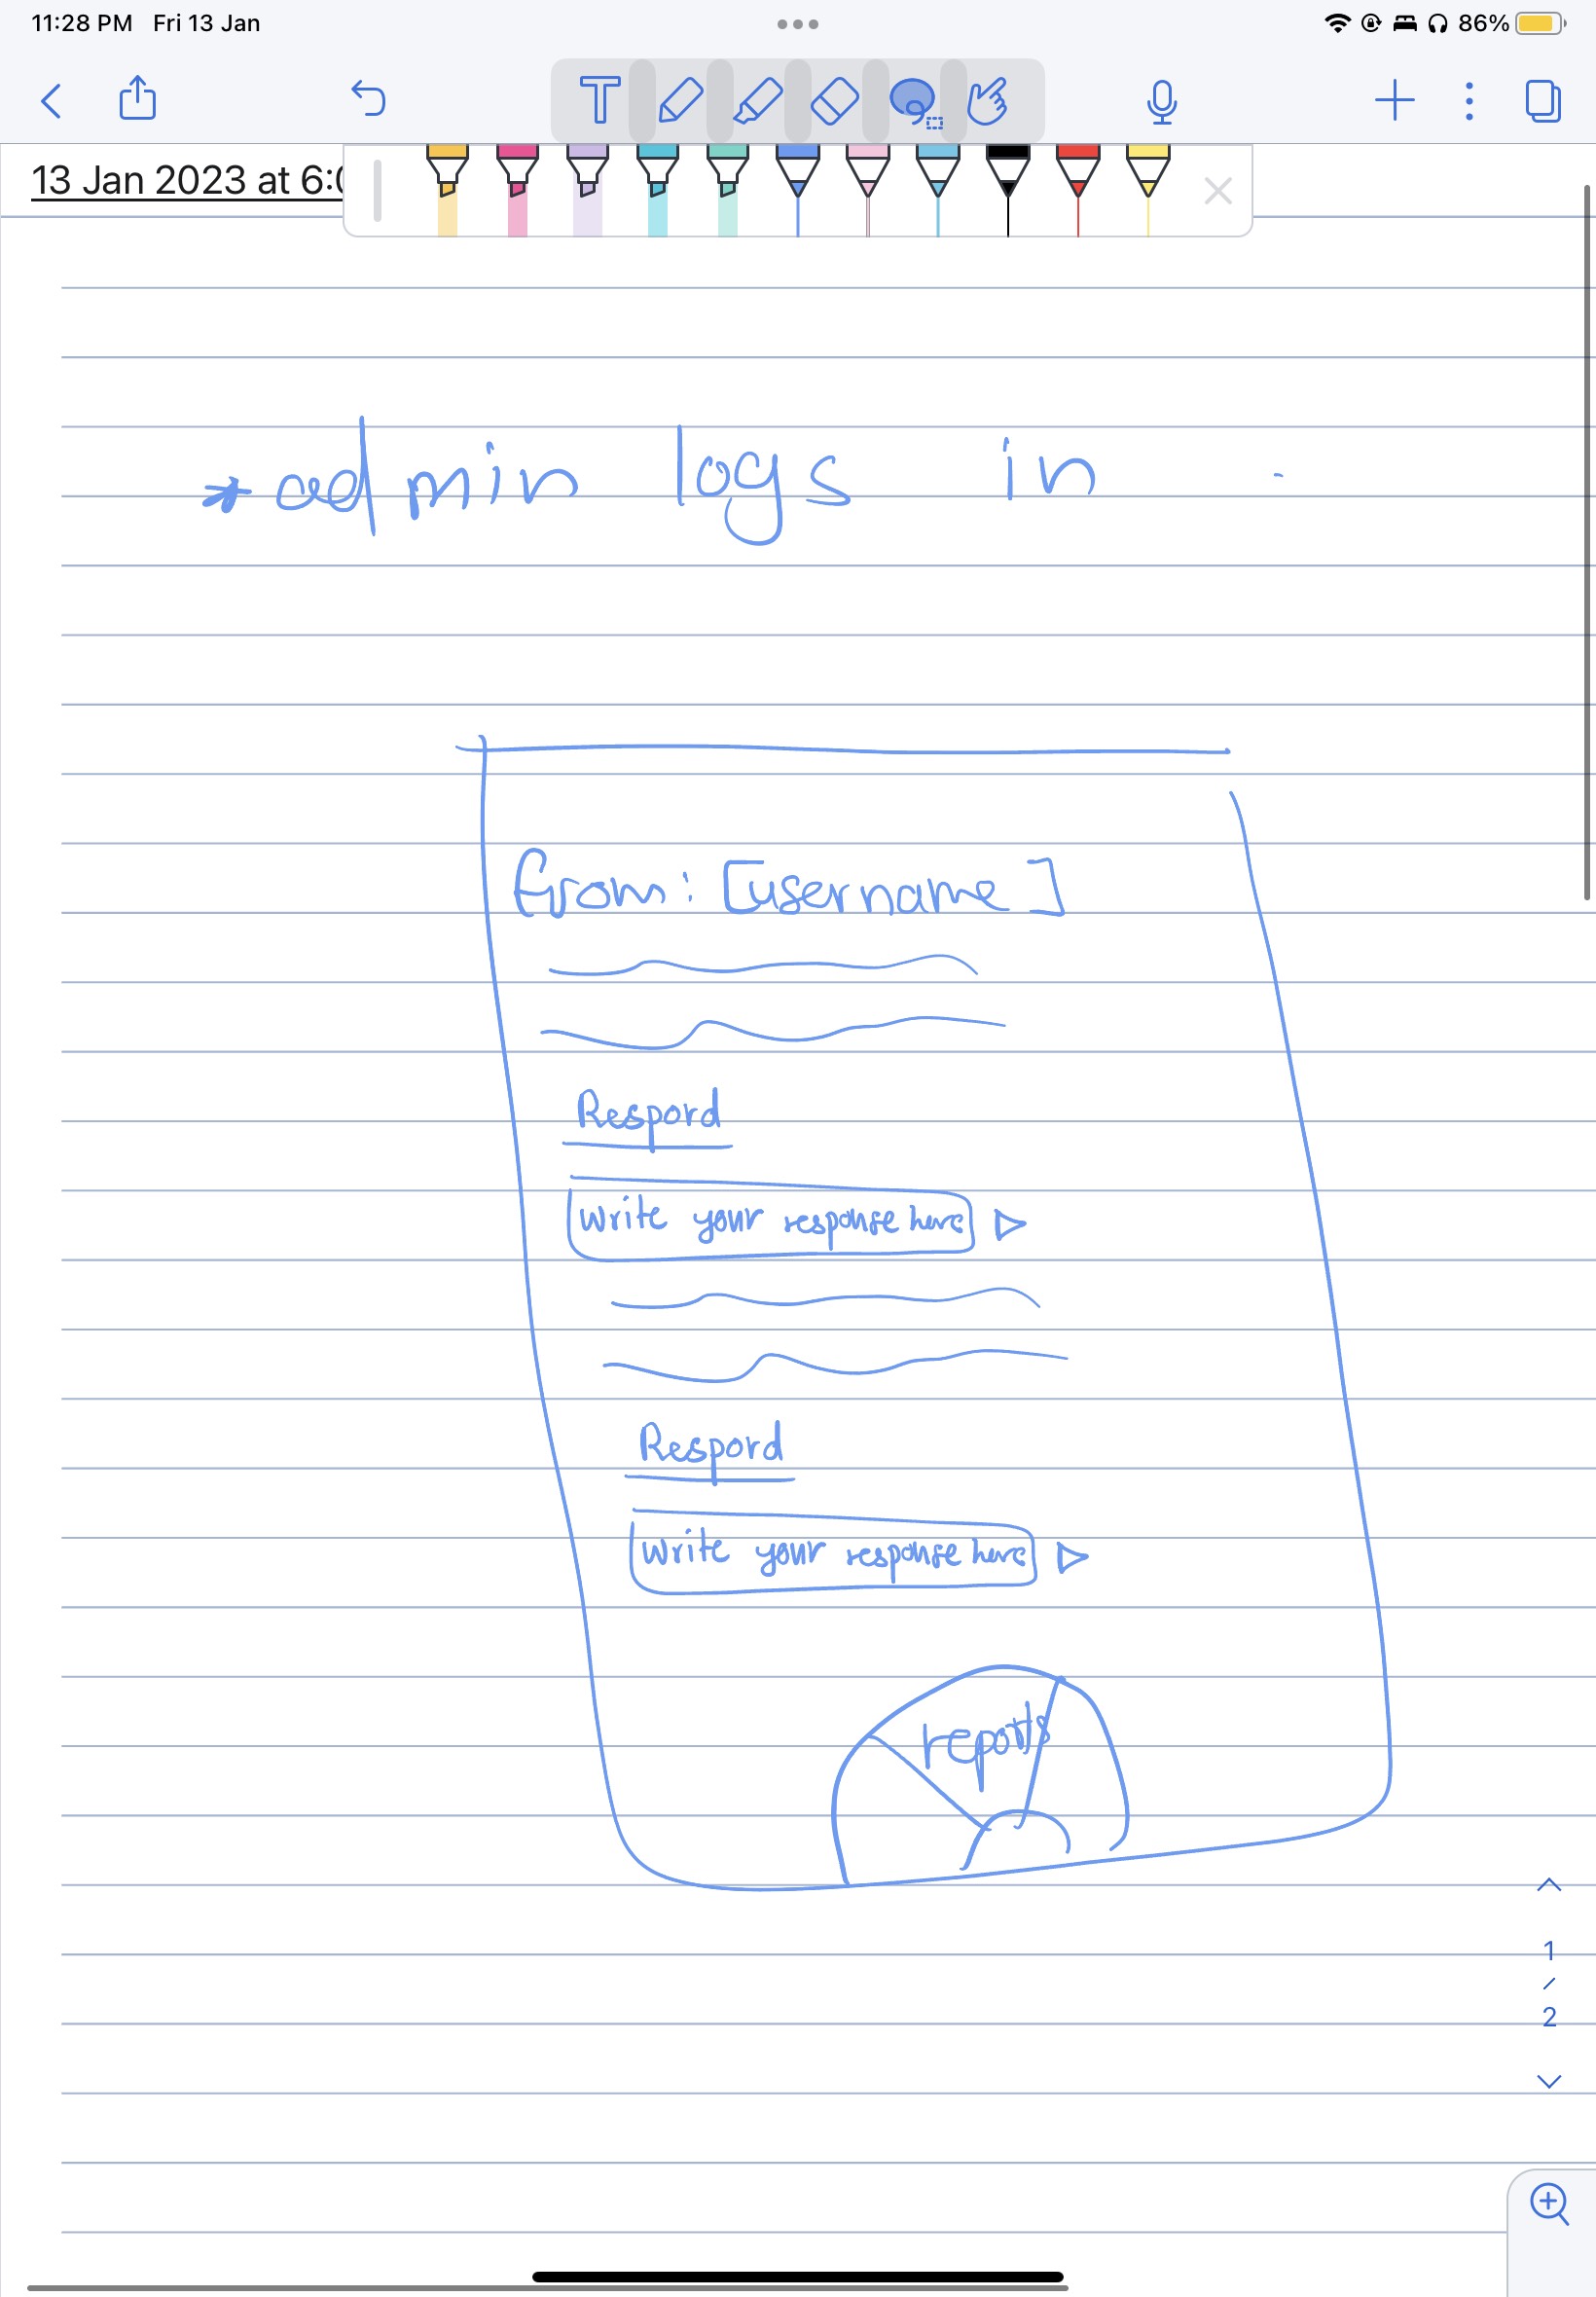 11:28 PM Fri 13 Jan 86%
T
13 Jan 2023 at 6:0
*admin logs in
from: [username]
Respond
Write your response here
Respond
Write your response here
reports
1
/
2